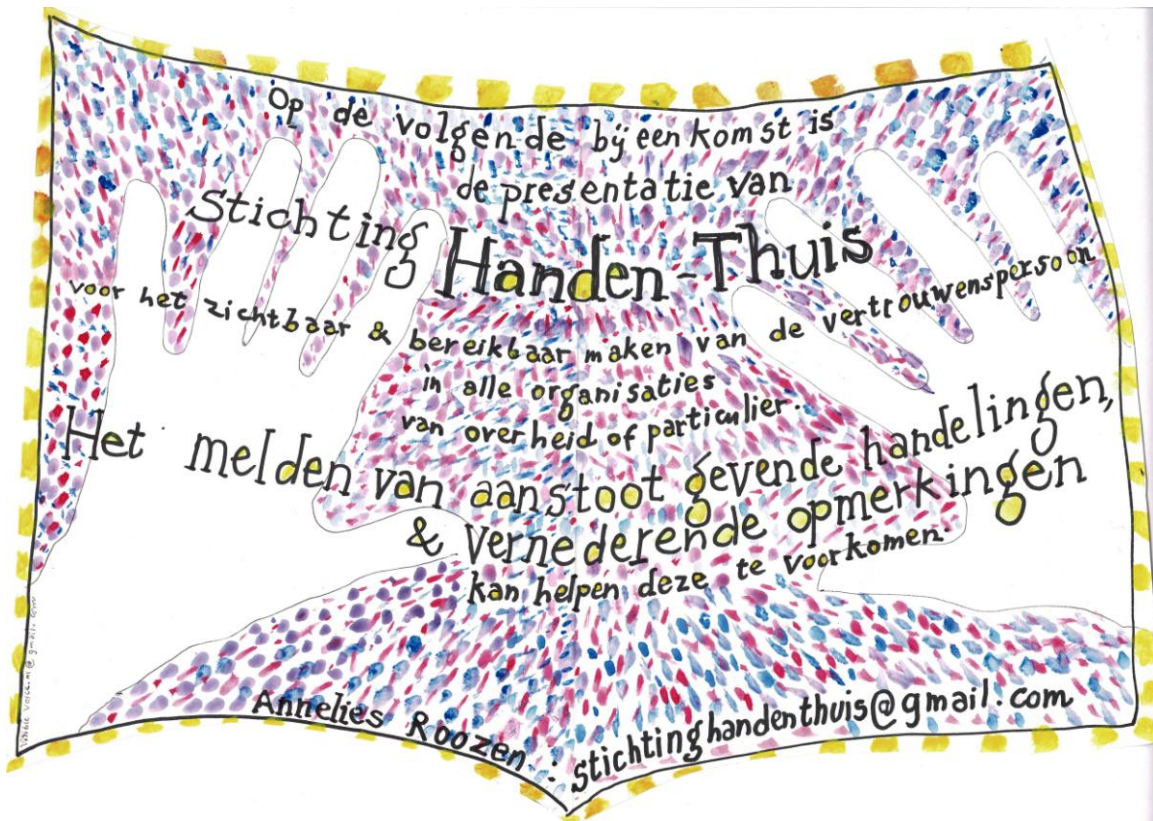 Op de volgende bijeenkomst is
de presentatie van
Stichting Handen-Thuis
voor het zichtbaar & bereikbaar maken van de vertrouwenspersoon
in alle organisaties
van overheid of particulier.
Het melden van aanstoot gevende handelingen,
& vernederende opmerkingen
kan helpen deze te voorkomen.
Annelies Roozen : stichtinghandenthuis@gmail.com